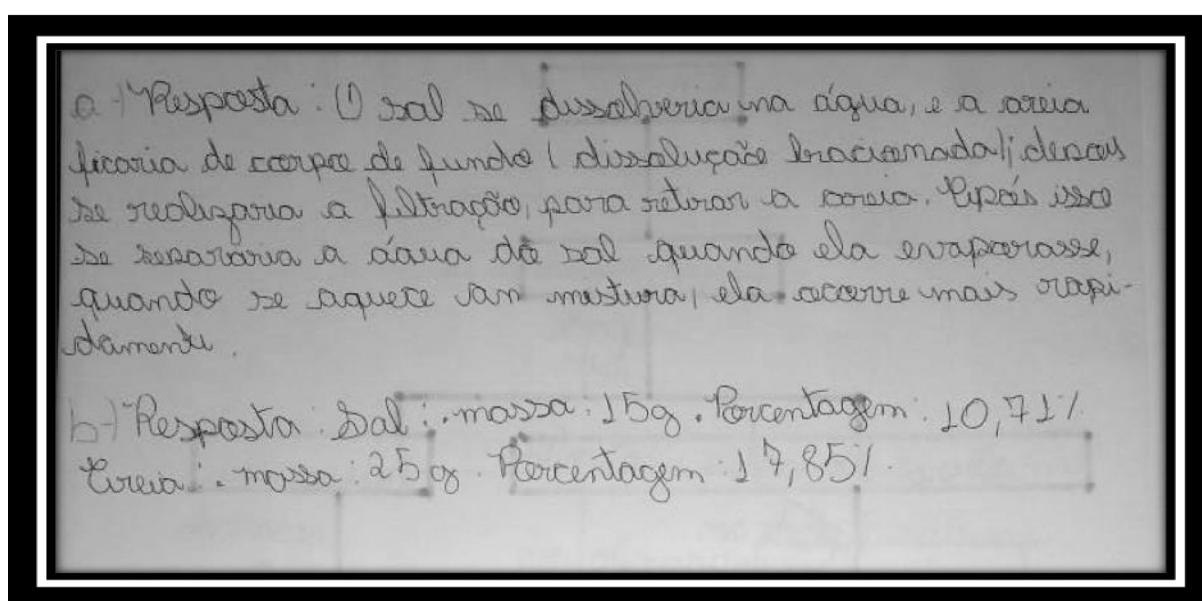 a-) Resposta: O sal se dissolveria na água, e a areia
ficaria de corpo de fundo (dissolução fracionada); depois
se realizaria a filtração, para retirar a areia. Após isso
se separaria a água do sal quando ela evaporasse,
quando se aquece mistura, ela ocorre mais rapi-
damente.
b-) Resposta: Sal: . massa: 15g . Porcentagem: 10,71%
Areia: . massa: 25g . Porcentagem: 17,85%.